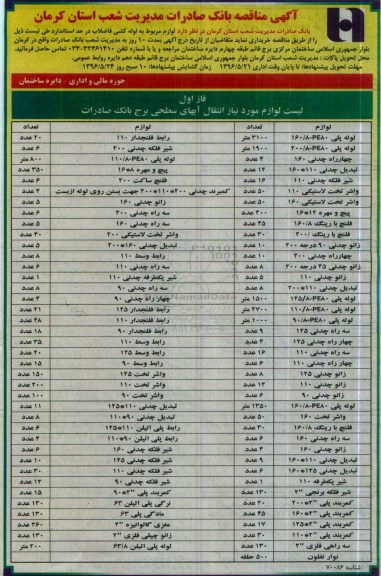 آگهی مناقصه بانک صادرات مدیریت شعب استان کرمان
بانک صادرات مدیریت شعب استان کرمان در نظر دارد لوازم مربوط به لوله کشی فاضلاب در حد استاندارد طی لیست ذیل
را از طریق مناقصه خریداری نماید متقاضیان از تاریخ درج آگهی بمدت ۱۰ روز به مدیریت شعب بانک صادرات واقع در کرمان
بلوار جمهوری اسلامی ساختمان مرکزی برج قائم طبقه چهارم دایره ساختمان مراجعه و یا با شماره تلفن ۳۲۴۶۱۴۱۰-۰۳۴ تماس حاصل فرمایند.
محل تحویل پاکات: مدیریت شعب استان کرمان بلوار جمهوری اسلامی ساختمان برج قائم طبقه دهم دایره روابط عمومی.
مهلت تحویل پیشنهادها: تا پایان وقت اداری ۱۳۹۶/۵/۲۱ زمان گشایش پیشنهادها: ۱۰ صبح روز ۱۳۹۶/۵/۲۴
حوزه مالی و اداری - دایره ساختمان
فاز اول
لیست لوازم مورد نیاز انتقال آبهای سطحی برج بانک صادرات
لوازم تعداد لوازم تعداد
لوله پلی ۱۶۰/۸-PE۸۰ ۳۱۰۰ متر رابط فلنجدار ۱۱۰ ۲۰ عدد
لوله پلی ۲۰۰/۸-PE۸۰ ۱۹۰۰ متر شیر فلکه چدنی ۲۰۰ ۶ عدد
چهارراه چدنی ۱۶۰ لوله پلی ۱۱۰/۸-PE۸۰ ۸۰۰ متر
تبدیل چدنی ۱۱۰*۱۶۰ پیچ و مهره ۸*۱۶ ۳۵۰ عدد
شیر فلکه چدنی ۱۱۰ ۱۶ عدد فلنج ساکت ۲۰۰ ۶ عدد
واشر تخت لاستیکی ۱۱۰ ۵۰ عدد کمربند چدنی ۲۰۰*۱۱۰*۲۰۰ جهت بستن روی لوله ازبست
واشر تخت لاستیکی ۱۶۰ ۵۰ عدد زانو چدنی ۱۶۰ ۵ عدد
پیچ و مهره ۱۲*۱۶ ۲۰۰ عدد سه راه چدنی ۲۰۰ ۶ عدد
فلنج با رینگ ۱۶۰/۸ سه راه چدنی ۱۶۰ ۵ عدد
فلنج با رینگ ۲۰۰/۸ ۳۰ عدد واشر تخت لاستیکی ۲۰۰ ۴۰ عدد
زانو چدنی ۹۰ درجه ۲۰۰ ۱۰ عدد تبدیل چدنی ۱۶۰*۲۰۰ ۵ عدد
چهارراه چدنی ۲۰۰ ۱۰ عدد رابط وسط ۱۱۰ ۸ عدد
زانو چدنی ۴۵ درجه ۲۰۰ ۸ عدد سه راه چدنی ۱۱۰ ۶ عدد
زانو چدنی ۱۱۰ ۵ عدد شیر یکطرفه چدنی ۱۱۰ ۱ عدد
تبدیل چدنی ۱۱۰*۲۰۰ ۸ عدد سه راه چدنی ۹۰
لوله پلی ۱۲۵/۸-PE۸۰ ۱۵۰۰ متر چهار راه چدنی ۹۰
لوله پلی ۱۱۰/۸-PE۸۰ ۲۷۰۰ متر رابط فلنجدار ۱۲۵ ۲۱ عدد
لوله پلی ۹۰/۸-PE۸۰ ۱۰۰۰ متر رابط فلنجدار ۱۱۰ ۲۸ عدد
سه راه چدنی ۱۲۵ ۹ عدد رابط فلنجدار ۹۰ ۱۸ عدد
چهار راه چدنی ۱۲۵ رابط وسط ۱۱۰ ۳۵ عدد
سه راه چدنی ۱۱۰ ۱۶ عدد رابط وسط ۱۲۵ ۲۰ عدد
چهار راه چدنی ۱۱۰ رابط وسط ۹۰ ۱۵ عدد
زانو چدنی ۱۲۵ ۸ عدد واشر تخت ۱۲۵ ۱۵۰ عدد
زانو چدنی ۱۱۰ ۱۲ عدد واشر تخت ۱۱۰ ۲۰۰ عدد
زانو چدنی ۹۰ ۶ عدد واشر تخت ۹۰ ۱۰۰ عدد
لوله پلی ۱۶۰/۸-PE۸۰ ۱۳۵۰ متر تبدیل چدنی ۱۱۰*۱۲۵ ۱۱ عدد
واشر تخت ۱۶۰ ۵۰ عدد تبدیل چدنی ۹۰*۱۱۰ ۸ عدد
فلنج با رینگ ۱۶۰/۸ ۳۰ عدد رابط پلی اتیلن ۱۱۰*۱۲۵ ۶ عدد
سه راه چدنی ۱۶۰ ۶ عدد رابط پلی اتیلن ۹۰*۱۱۰
زانو چدنی ۱۶۰ شیر فلکه چدنی ۱۶۰ ۶ عدد
تبدیل چدنی ۱۱۰*۱۶۰ ۹ عدد شیر فلکه چدنی ۱۲۵ ۱۰ عدد
تبدیل چدنی ۱۲۵*۱۶۰ ۶ عدد شیر فلکه چدنی ۱۱۰ ۳۰ عدد
شیر یکطرفه ۱۱۰ ۱ عدد شیر فلکه چدنی ۹۰ ۱۲ عدد
شیر فلکه برنجی "۲ ۱۳۰ عدد کمربند پلی "۲*۹۰ ۱۵ عدد
کمربند پلی "۲*۲۰۰ ۲۰ عدد نرگی پلی اتیلن ۶۳ ۱۳۰ عدد
کمربند پلی "۲*۱۶۰ ۴۵ عدد مادگی پلی ۶۳ ۱۳۰ عدد
کمربند پلی "۲*۱۲۵ ۱۷ عدد مغزی گالوانیزه "۲ ۲۶۰ عدد
کمربند پلی "۲*۱۱۰ ۳۰ عدد زانو چپقی فلزی "۲
سه راهی فلزی "۲ ۱۳۰ عدد لوله پلی اتیلن ۶۳/۸ ۲۰۰ متر
نوار تفلون ۵۰۰ حلقه شناسه ۷۰۰۸۶